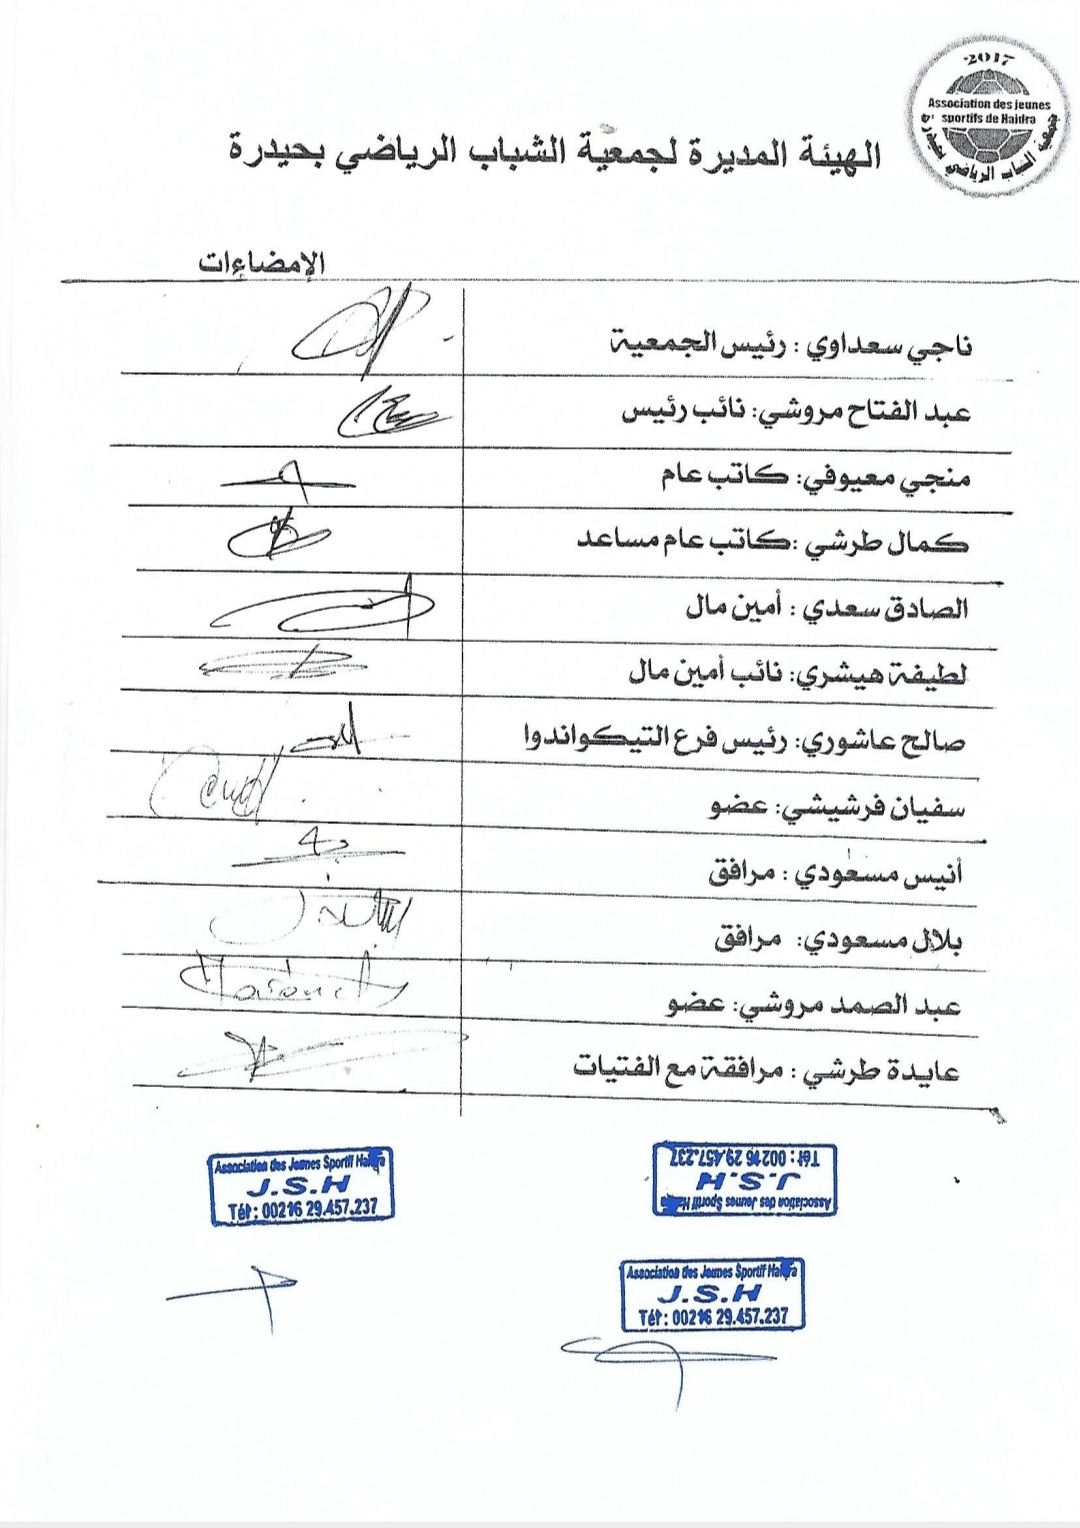 2017
Association des jeunes
sportifs de Haidra
جمعية الشباب الرياضي بحيدرة
الهيئة المديرة لجمعية الشباب الرياضي بحيدرة
الإمضاءات
ناجي سعداوي : رئيس الجمعية
عبد الفتاح مروشي: نائب رئيس
منجي معيوفي: كاتب عام
كمال طرشي :كاتب عام مساعد
الصادق سعدي : أمين مال
لطيفة هيشري: نائب أمين مال
صالح عاشوري: رئيس فرع التيكواندوا
سفيان فرشيشي: عضو
أنيس مسعودي : مرافق
بلال مسعودي: مرافق
عبد الصمد مروشي: عضو
عايدة طرشي : مرافقة مع الفتيات
Association des Jeunes Sportif Haidra
J.S.H
Tél : 00216 29.457.237
Association des Jeunes Sportif
J.S.H
Tél : 00216 29.457.237
Association des Jeunes Sportif Haidra
J.S.H
Tél : 00216 29.457.237